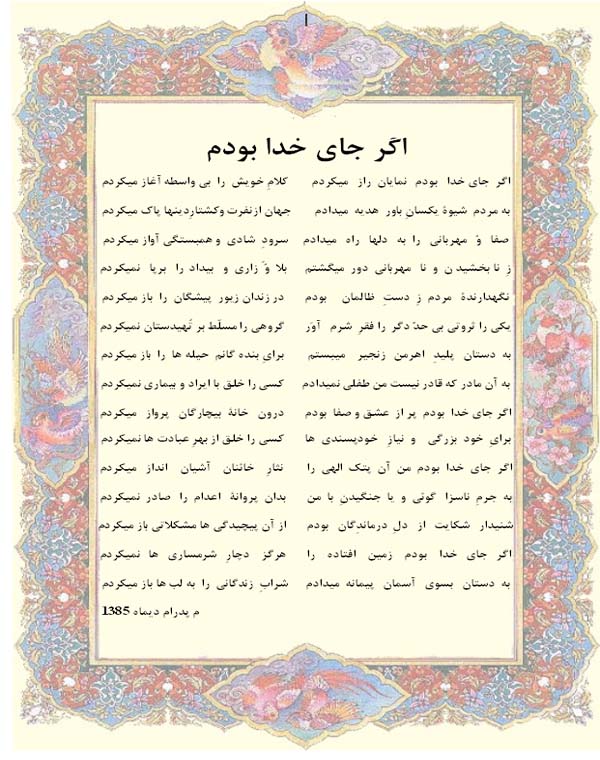 اگر جای خدا بودم
اگر جای خدا بودم نمایان راز میکردم کلامِ خویش را بی واسطه آغاز میکردم
به مردم شیوهٔ یکسانِ باور هدیه میدادم جهان از نفرت و کشتارِ دینها پاک میکردم
صفا و مهربانی را به دلها راه میدادم سرودِ شادی و همبستگی آواز میکردم
زِ نا بخشیدن و نا مهربانی دور میگشتم بلا و زاری و بیداد را برپا نمیکردم
نگهدارندهٔ مردم زِ دستِ ظالمان بودم در زندان زیور پیشگان را باز میکردم
یکی را ثروتی بی حدّ دگر را فقرِ شرم آور گروهی را مسلّط بر تهیدستان نمیکردم
به دستان پلیدِ اهرمن زنجیر میبستم برای بنده گانم حیله ها را باز میکردم
به آن مادر که قادر نیست من طفلی نمیدادم کسی را خلق با ایراد و بیماری نمیکردم
اگر جای خدا بودم پر از عشق و صفا بودم درون خانهٔ بیچارگان پرواز میکردم
برای خود بزرگی و نیازِ خودپسندی ها کسی را خلق از بهرِ عبادت ها نمیکردم
اگر جای خدا بودم من آن پتک الهی را نثارِ خائنان آشیان انداز میکردم
به جرمِ ناسزا گوئی و یا جنگیدنِ با من بدان پروانهٔ اعدام را صادر نمیکردم
شنیدار شکایت از دلِ درماندگان بودم از آن پیچیدگی ها مشکلاتی باز میکردم
اگر جای خدا بودم زمین افتاده را هرگز دچارِ شرمساری ها نمیکردم
به دستان بسوی آسمان پیمانه میدادم شرابِ زندگانی را به لب ها باز میکردم
م پدرام دیماه 1385